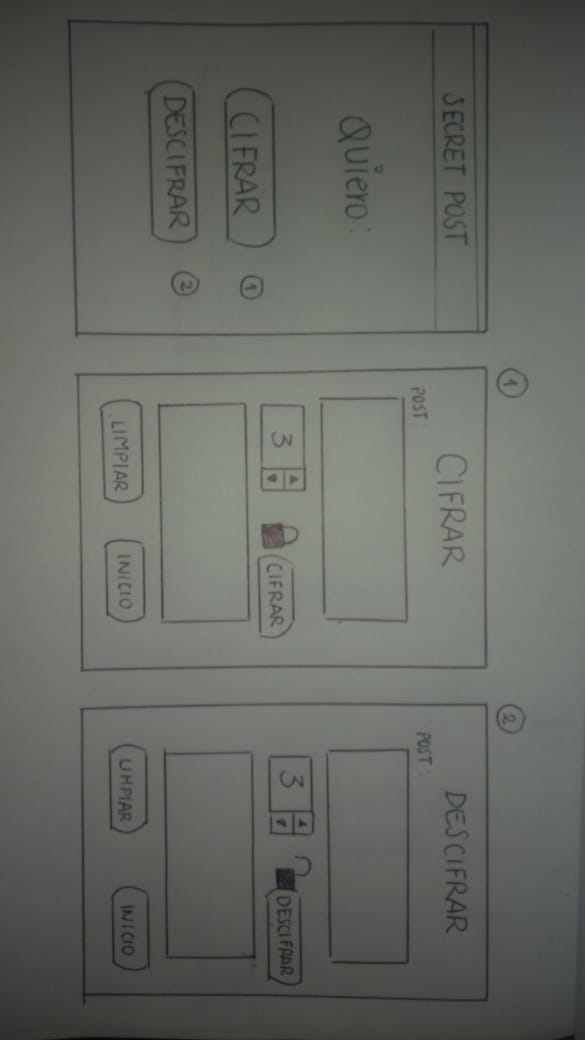 SECRET POST
Quiero:
CIFRAR 1
DESCIFRAR 2
1
CIFRAR
POST:
3 CIFRAR
LIMPIAR INICIO
2
DESCIFRAR
POST:
3 DESCIFRAR
LIMPIAR INICIO